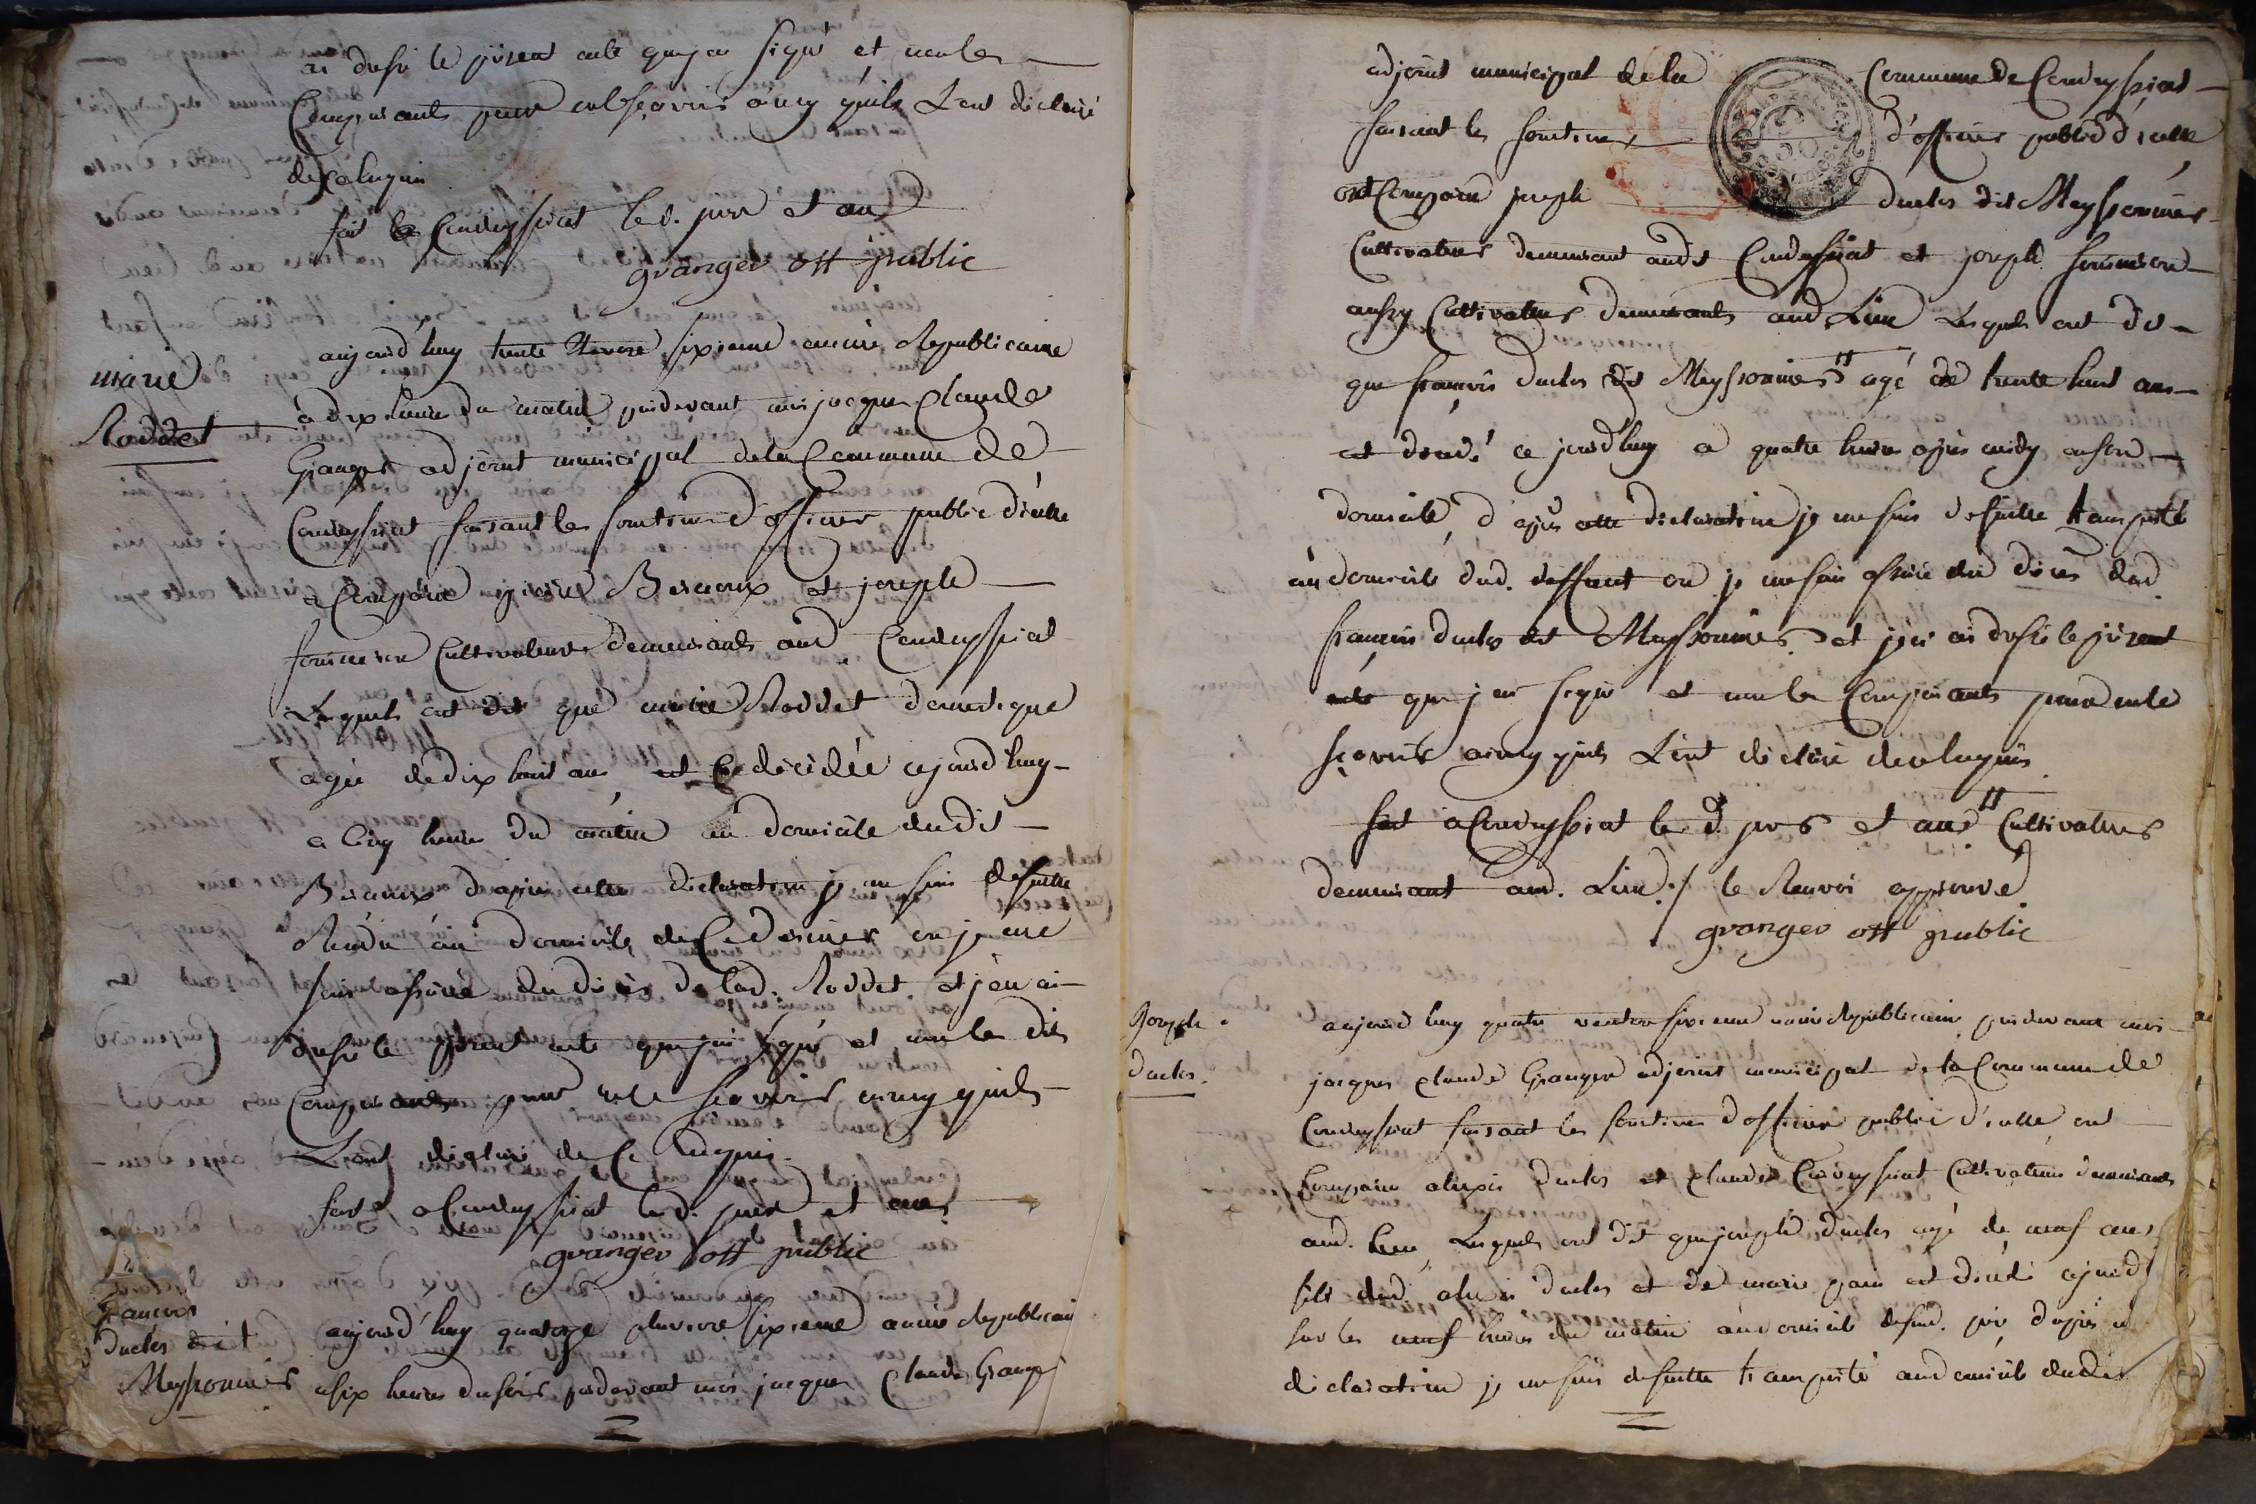 ai dressé le présent acte que j'ai signé et non les
Comparants pour cel sçavoir ainsy quils L'ont declaré
de ce Enquis
fait a Condeyssiat le d. jour et an
granger off public
marie
Roddet
aujourd'huy trente Nivose sixieme année Republicaine
à dix heure du matin pardevant moi jacque Claude
Granger adjoint municipal de la Commune de
Condeyssiat faisant les fonctions d'officier public d'icelle
a Comparu pierre Biscaux et joseph
fournier Cultivateurs demeurants aud Condeyssiat
Lesquels ont dit que marie Roddet domestique
agée de dix huit ans est décédée ce jourd'huy
a Cinq heure du matin au domicile dudit
Biscaux d'apres cette declaration je me suis de suitte
Rendu au domicile de Ce dernier ou je me
suis assuré du décès de lad. Roddet et j'en ai
dressé le present acte que j'ai signé et non les dits
Comparants pour ne le sçavoir ainsy quils
L'ont declaré de Ce Enquis.
fait a Condeyssiat le d. jour et an
granger off public
francois
duclos dit
Meyssonnier
aujourd'huy quatorze pluviose sixieme année Republicaine
a six heures du soir pardevant moi jacques Claude Granger
adjoint municipal de la Commune de Condeyssiat
faisant les fonctions d'officier public d'icelle
ont Comparu joseph duclos dit Meyssonnier
Cultivateur demeurant audit Condeyssiat et joseph
aussy Cultivateur demeurants aud Lieu Lesquels ont dit
que françois duclos dit Meyssonnier # agé de trente huit ans
est décédé ce jourd'huy a quatre heure après midy en son
domicile, d'après cette declaration je me suis de suitte transporté
au domicile dud. deffunt ou je me suis assuré du décès dud.
francois duclos dit Meyssonnier et j'ai dressé le présent
acte que j'ai signé et non les Comparants pour ne le
sçavoir ainsy quils L'ont declaré de ce Enquis
fait a Condeyssiat le d. jour et an # Cultivateur
demeurant aud. Lieu ./. le Renvoi approuvé
granger off public
Joseph
duclos.
aujourd'huy quatre ventose sixieme année Republicaine pardevant moi
jacques claude Granger adjoint municipal de la Commune de
Condeyssiat faisant les fonctions d'officier public d'icelle ont
Comparu alexis duclos et claude Condeyssiat Cultivateurs demeurants
aud. lieu, Lesquels ont dit que joseph duclos agé de neuf ans
fils dud. alexis duclos et de marie est décédé ce jourd
sur les neuf heures du matin au domicile de sond. père d'après
declaration je me suis de suitte transporté au domicile dudit